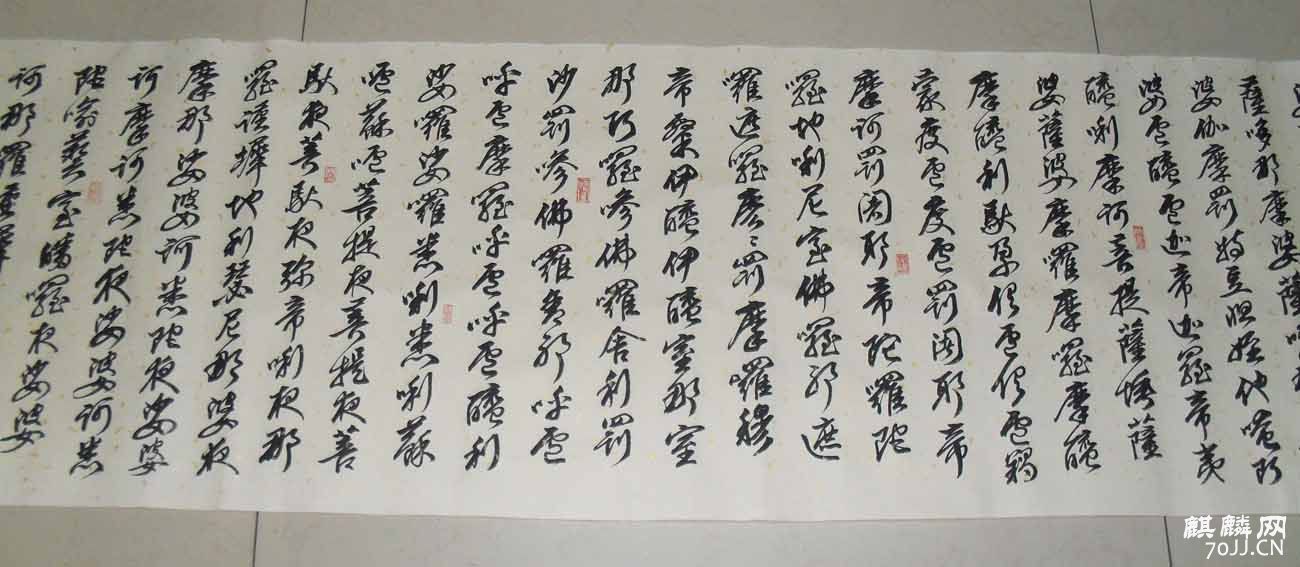 薩哆那摩婆薩
婆伽摩罰特豆怛姪他唵阿
婆盧醯盧迦帝迦羅帝夷
醯唎摩訶菩提薩埵薩
婆薩婆摩囉摩囉摩醯
摩醯利馱孕俱盧俱盧羯
蒙度盧度盧罰闍耶帝
摩訶罰闍耶帝陀囉陀
囉地唎尼室佛囉耶遮
囉遮囉麼麼罰摩囉穆
帝隸伊醯伊醯室那室
那阿囉參佛囉舍利罰
沙罰嘇佛囉舍耶呼盧
呼盧摩囉呼盧呼盧醯利
娑囉娑囉悉唎悉唎蘇
嚧蘇嚧菩提夜菩提夜菩
馱夜菩馱夜弥帝唎夜那
囉謹墀地利瑟尼那婆夜
摩那娑婆訶悉陀夜娑婆
訶摩訶悉陀夜娑婆訶悉
陀喻藝室皤囉夜娑婆
訶那囉謹墀
麒麟网
70JJ.CN